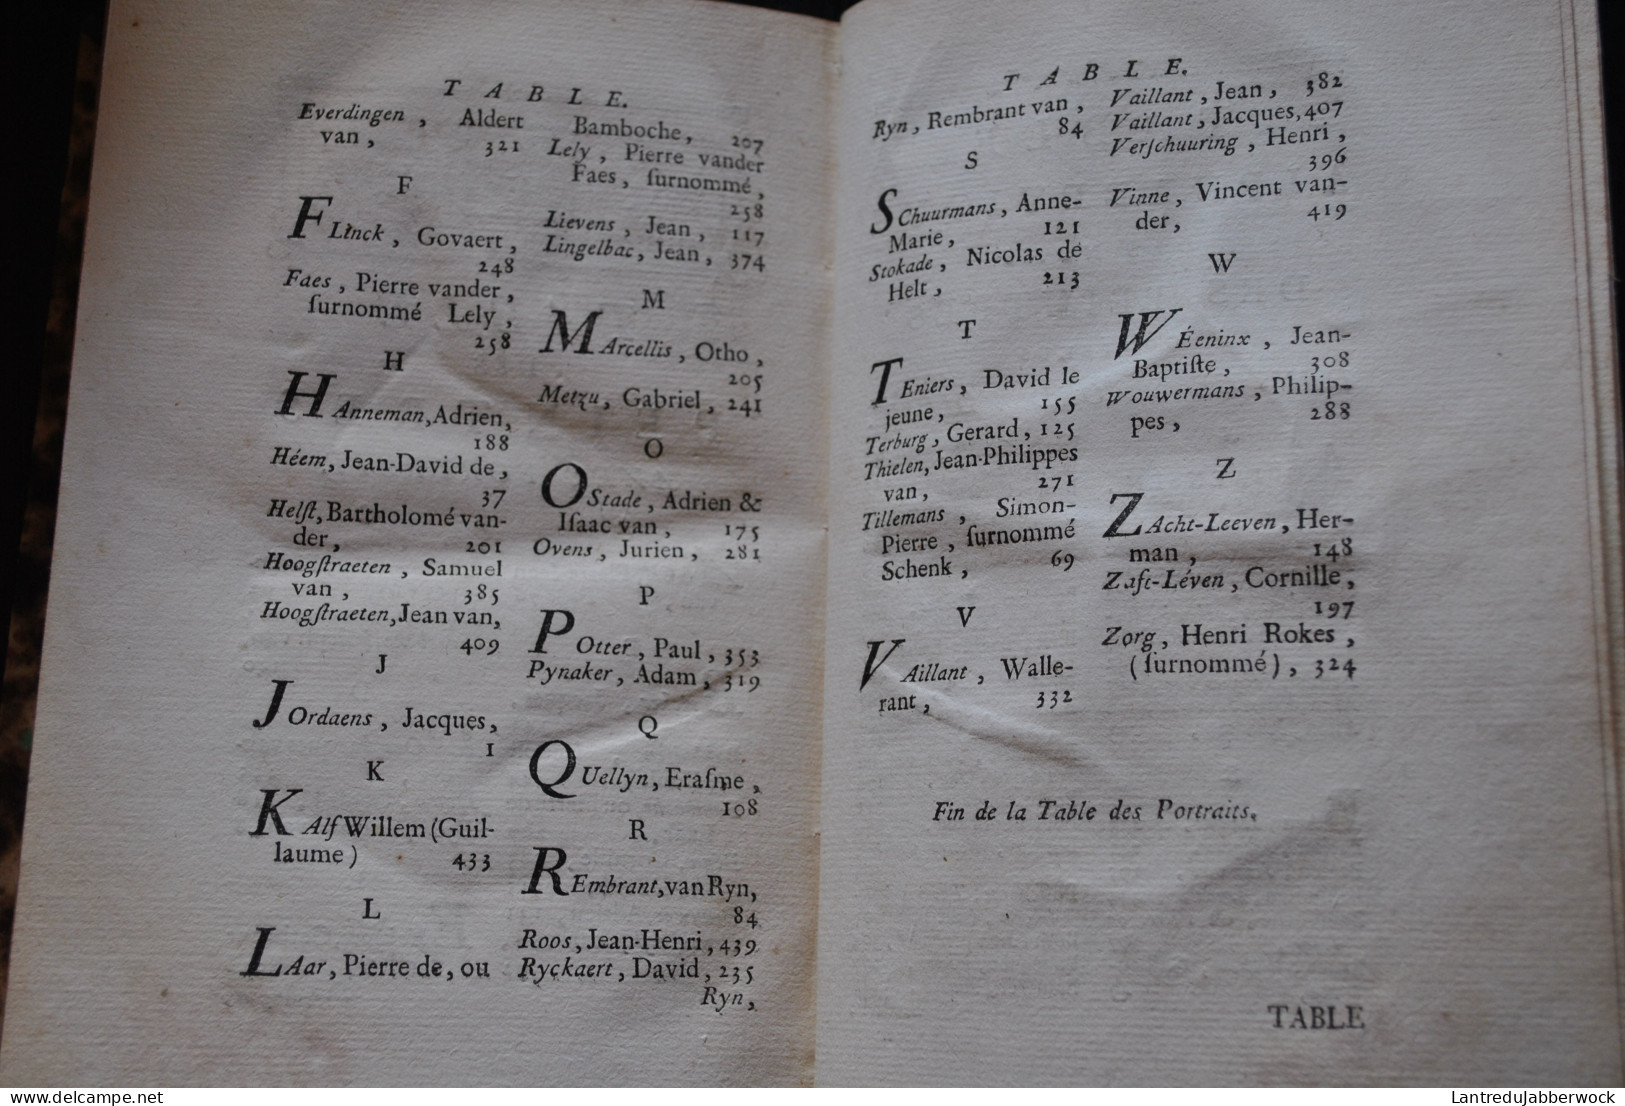 TABLE.
Everdingen, Aldert
van, 321
F
FLinck, Govaert,
248
Faes, Pierre vander,
ſurnommé Lely,
258
H
HAnneman, Adrien,
188
Héem, Jean-David de,
37
Helſt, Bartholomé van-
der, 201
Hoogſtraeten, Samuel
van, 385
Hoogſtraeten, Jean van,
409
J
JOrdaens, Jacques,
1
K
KAlf Willem (Guil-
laume) 433
L
LAar, Pierre de, ou
Bamboche, 207
Lely, Pierre vander
Faes, ſurnommé,
258
Lievens, Jean, 117
Lingelbac, Jean, 374
M
MArcellis, Otho,
205
Metzu, Gabriel, 241
O
OStade, Adrien &
Iſaac van, 175
Ovens, Jurien, 281
P
POtter, Paul, 353
Pynaker, Adam, 319
Q
QUellyn, Eraſme,
108
R
REmbrant, van Ryn,
84
Roos, Jean-Henri, 439
Ryckaert, David, 235
Ryn,
TABLE.
Ryn, Rembrant van,
84
S
SChuurmans, Anne-
Marie, 121
Stokade, Nicolas de
Helt, 213
T
TEniers, David le
jeune, 155
Terburg, Gerard, 125
Thielen, Jean-Philippes
van, 271
Tillemans, Simon-
Pierre, ſurnommé
Schenk, 69
V
VAillant, Walle-
rant, 332
Vaillant, Jean, 382
Vaillant, Jacques, 407
Verſchuuring, Henri,
396
Vinne, Vincent van-
der, 419
W
WÉeninx, Jean-
Baptiſte, 308
Wouwermans, Philip-
pes, 288
Z
ZAcht-Leeven, Her-
man, 148
Zaft-Léven, Cornille,
197
Zorg, Henri Rokes,
(ſurnommé), 324
Fin de la Table des Portraits.
TABLE
delcampe.net
LantreduJabberwock